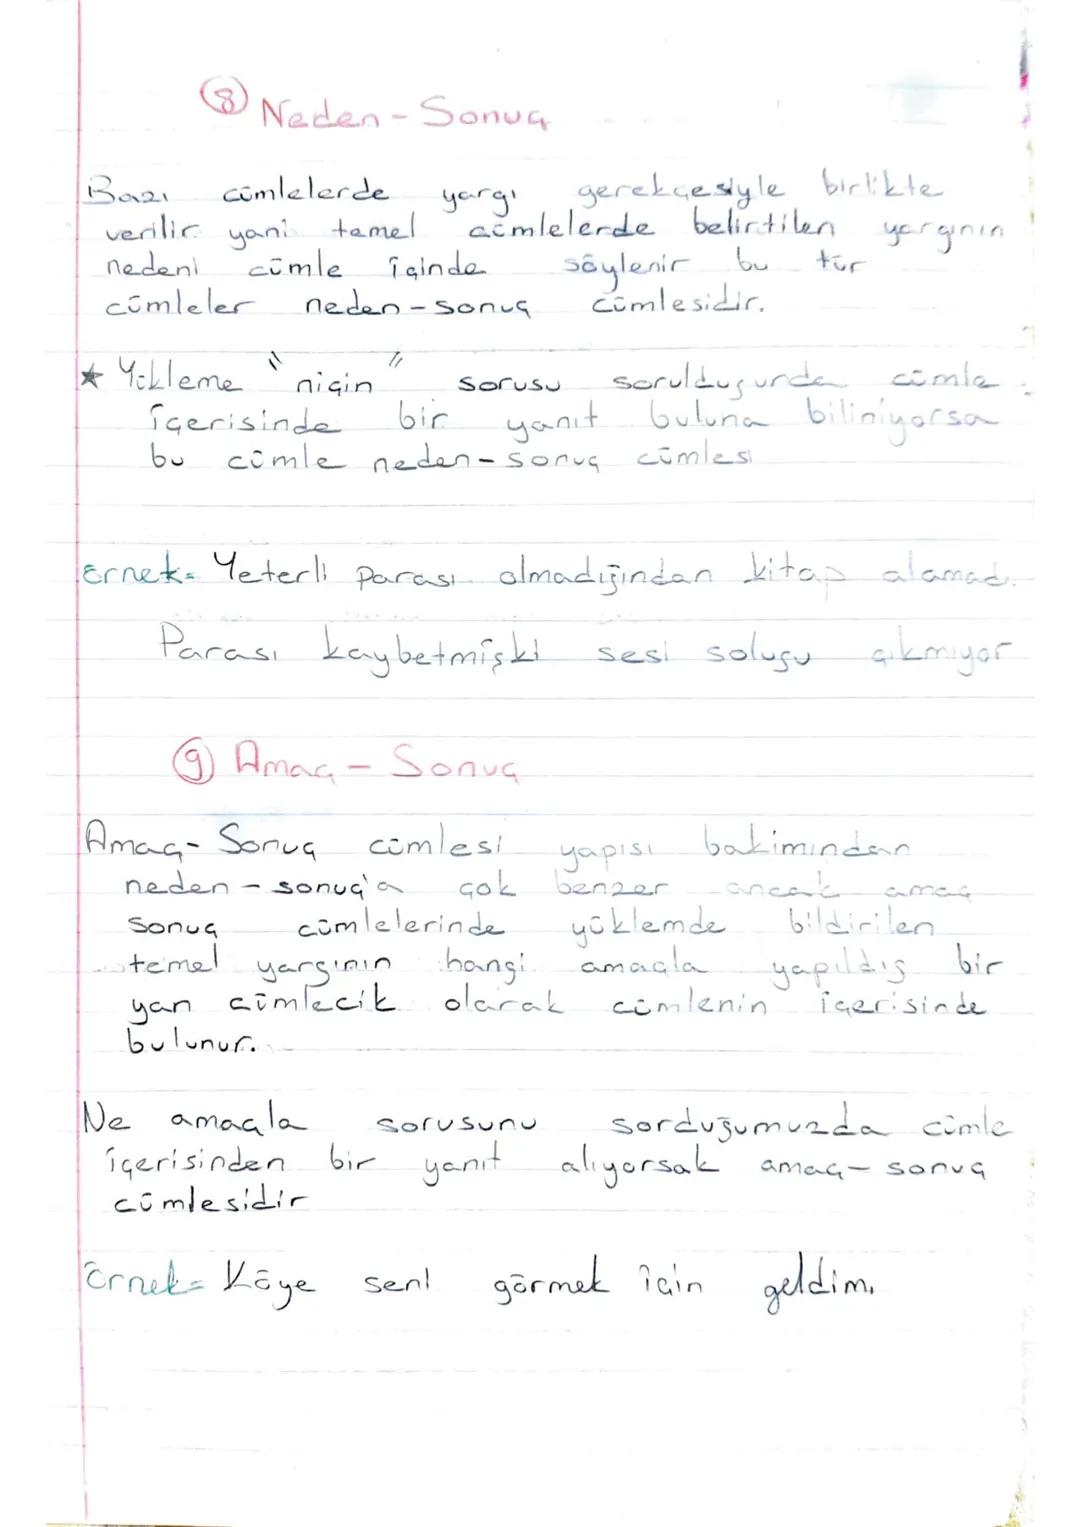 8 Neden - Sonuç
Bazı cümlelerde yargı gerekçesiyle birlikte
verilir yani temel cümlelerde belirtilen yargının
nedeni cümle içinde söylenir bu tür
cümleler neden-sonuç cümlesidir.
★ Yükleme "niçin" sorusu sorulduğunda cümle
içerisinde bir yanıt buluna biliniyorsa
bu cümle neden-sonuç cümlesi
Örnek= Yeterli parası olmadığından kitap alamadı.
Parası kaybetmişki sesi soluğu çıkmıyor
9 Amaç - Sonuç
Amaç- Sonuç cümlesi yapısı bakimından
neden - sonuç'a çok benzer ancak amaç
sonuç cümlelerinde yüklemde bildirilen
temel yargının hangi amaçla yapıldığ bir
yan cümlecik olarak cümlenin içerisinde
bulunur.
Ne amaçla sorusunu sorduğumuzda cümle
içerisinden bir yanıt alıyorsak amaç- sonuç
cümlesidir
Örnek= Köye seni görmek için geldim.